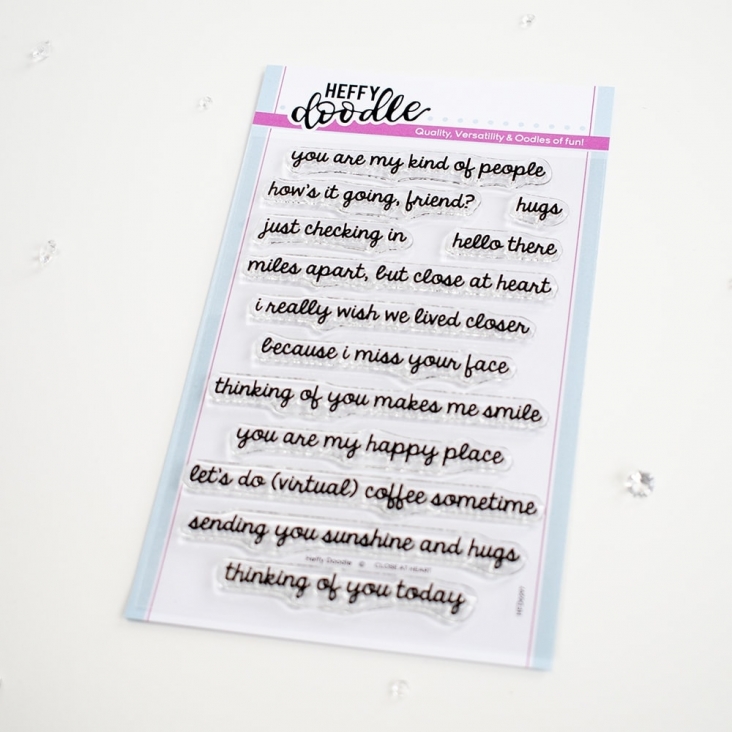 HEFFY
doodle
Quality, Versatility & Oodles of fun!
you are my kind of people
how's it going, friend? hugs
just checking in hello there
miles apart, but close at heart
i really wish we lived closer
because i miss your face
thinking of you makes me smile
you are my happy place
let's do (virtual) coffee sometime
sending you sunshine and hugs
Heffy Doodle © CLOSE AT HEART
thinking of you today